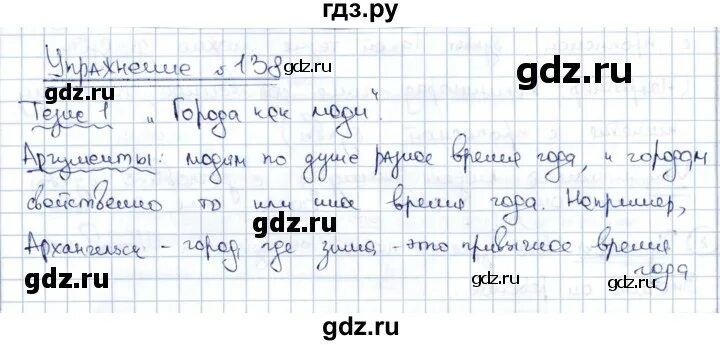 гдз.ру
Упражнение 138
gdz.ru
gdz.ru
Тезис 1 „Города как люди".
gdz.ru
gdz.ru
Аргументы: людям по душе разное время года, и городам
свойственно то или иное время года. Например,
gdz.ru
gdz.ru
Архангельск - город, где зима - это привычное время
года
gdz.ru
gdz.ru
гдз.ру